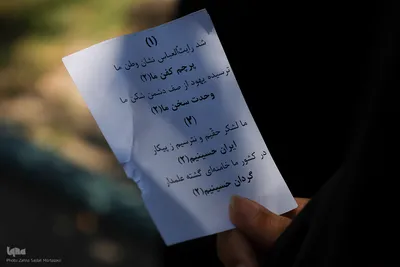 (۱)
شد رایت‌العباس نشان وطن ما
پرچم کفن ما(۲)
ترسیده یهود از صف دشمن شکن ما
وحدت سخن ما(۲)
(۲)
ما لشکر حقیم و نترسیم ز پیکار
ایران حسینیم(۲)
در کشور ما خامنه‌ای گشته علمدار
گردان حسینیم(۲)
ایکنا
Photo: Zahra Sadat Mortazavi